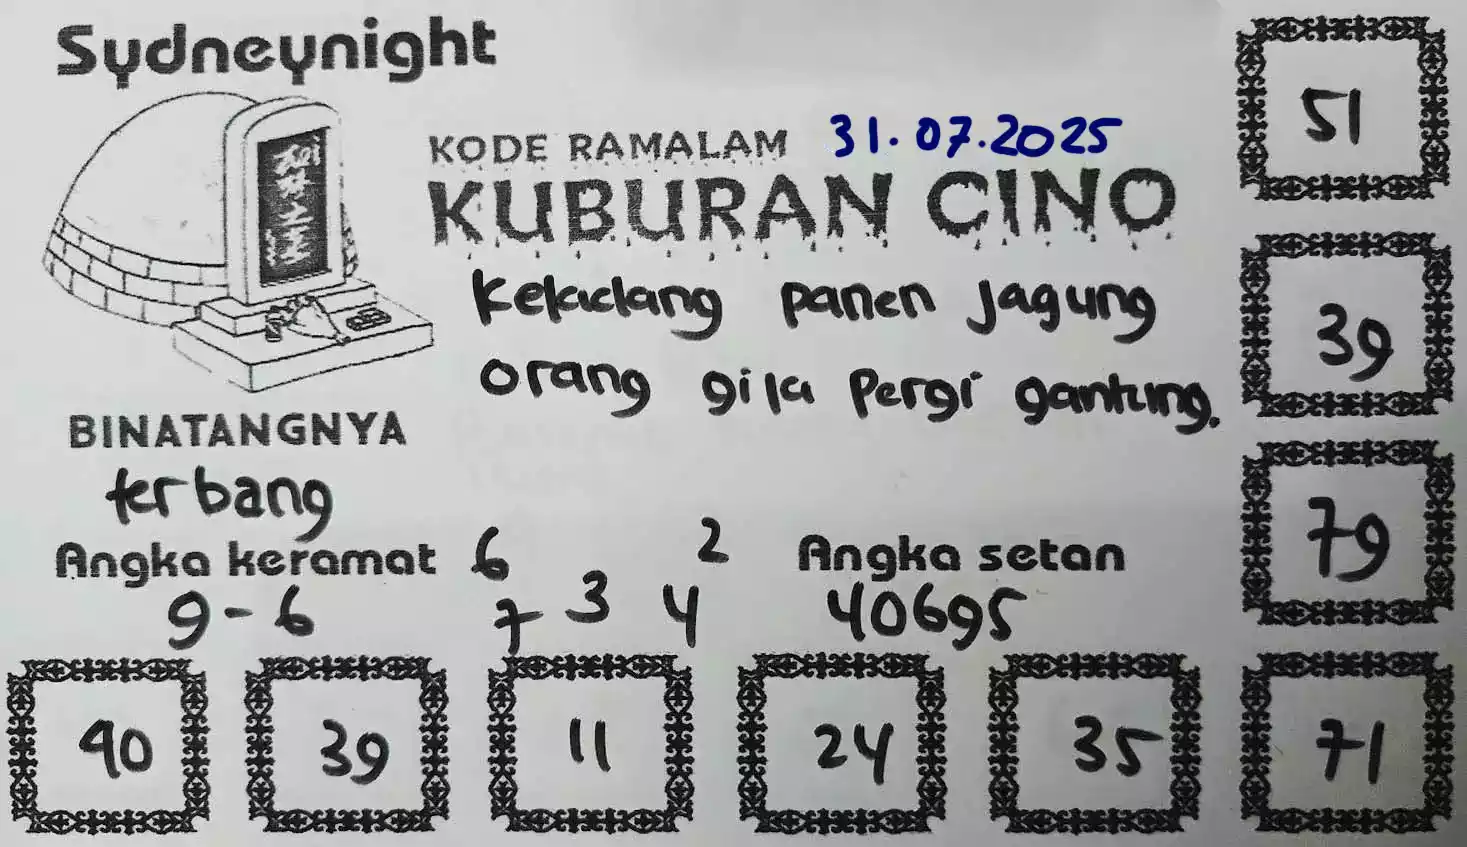 Sydneynight
KODE RAMALAM 31.07.2025
KUBURAN CINO
Keladang panen jagung
orang gila pergi gantung.
BINATANGNYA
terbang
Angka keramat
9-6
6 2
7 3 4
Angka setan
40695
51
39
79
90 39 11 24 35 71